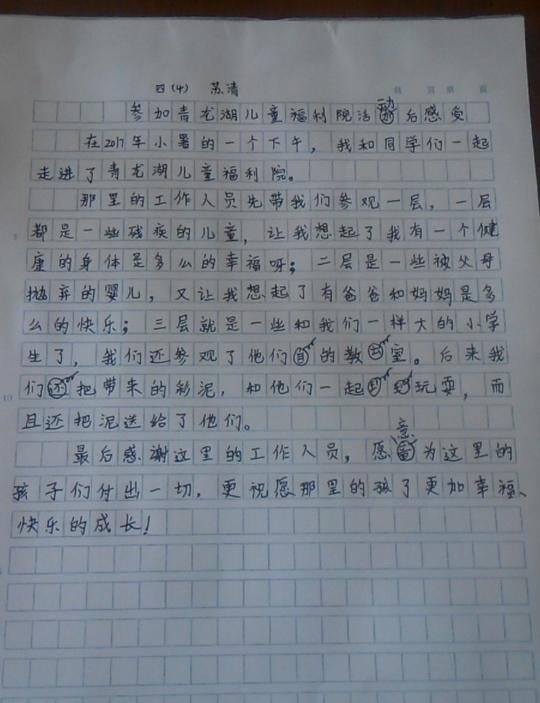 四(4) 苏清
参加青龙湖儿童福利院活动后感受
在2017年小暑的一个下午，我和同学们一起
走进了青龙湖儿童福利院。
那里的工作人员先带我们参观一层，一层
都是一些残疾的儿童，让我想起了我有一个健
康的身体是多么的幸福呀；二层是一些被父母
抛弃的婴儿，又让我想起了有爸爸和妈妈是多
么的快乐；三层就是一些和我们一样大的小学
生了，我们还参观了他们的教室。后来我
们把带来的彩泥，和他们一起玩耍，而
且还把泥送给了他们。
最后感谢这里的工作人员，愿意为这里的
孩子们付出一切，更祝愿那里的孩子更加幸福、
快乐的成长！
5
10